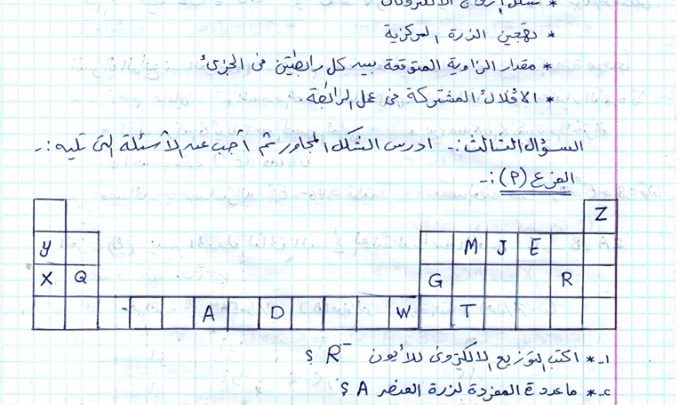 * شكل أزواج الالكترونات
* تهجين الذرة المركزية
* مقدار الزاوية المتوقعة بين كل رابطتين في الجزئ
* الأفلاك المشتركة في عمل الرابطة.
السؤال الثالث :- ادرس الشكل المجاور ثم أجب عن الأسئلة التي تليه :-
الفرع (P) :-
Z
Y M J E
X Q G R
A D W T
١-* اكتب التوزيع الالكتروني للأيون R⁻ ؟
٢-* ما عدد e المفردة لذرة العنصر A ؟